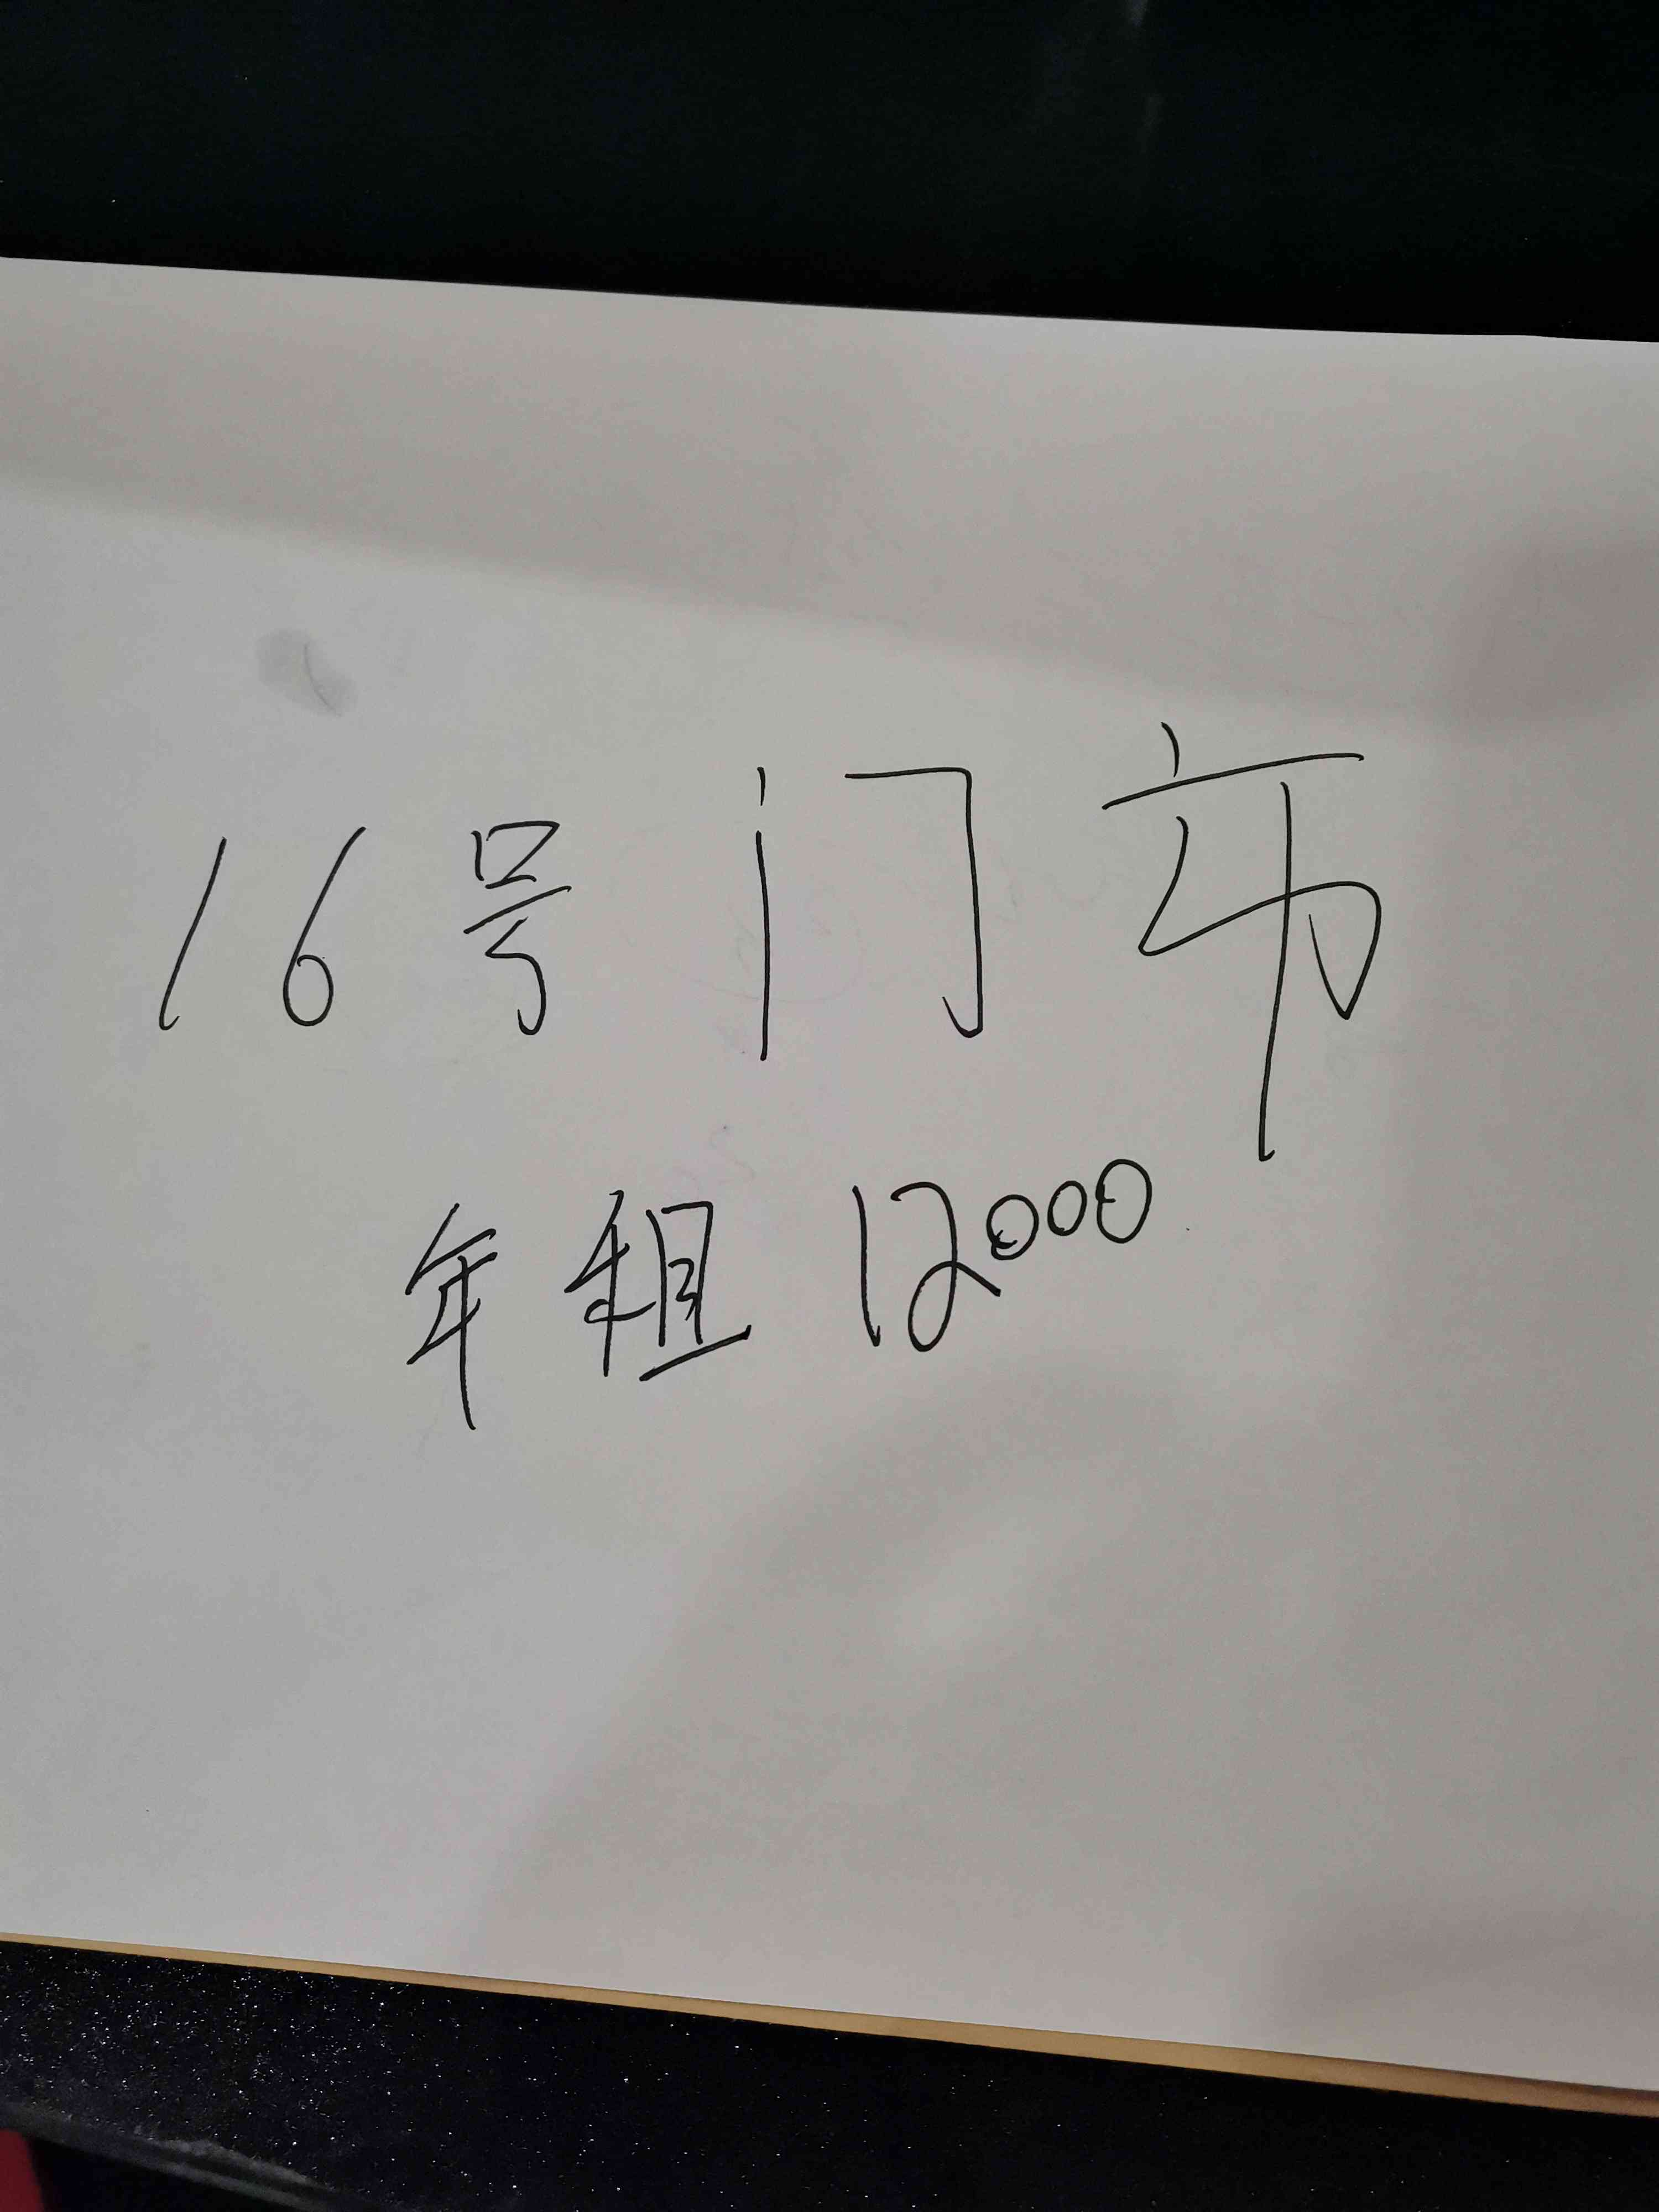 16号门市
年租12000